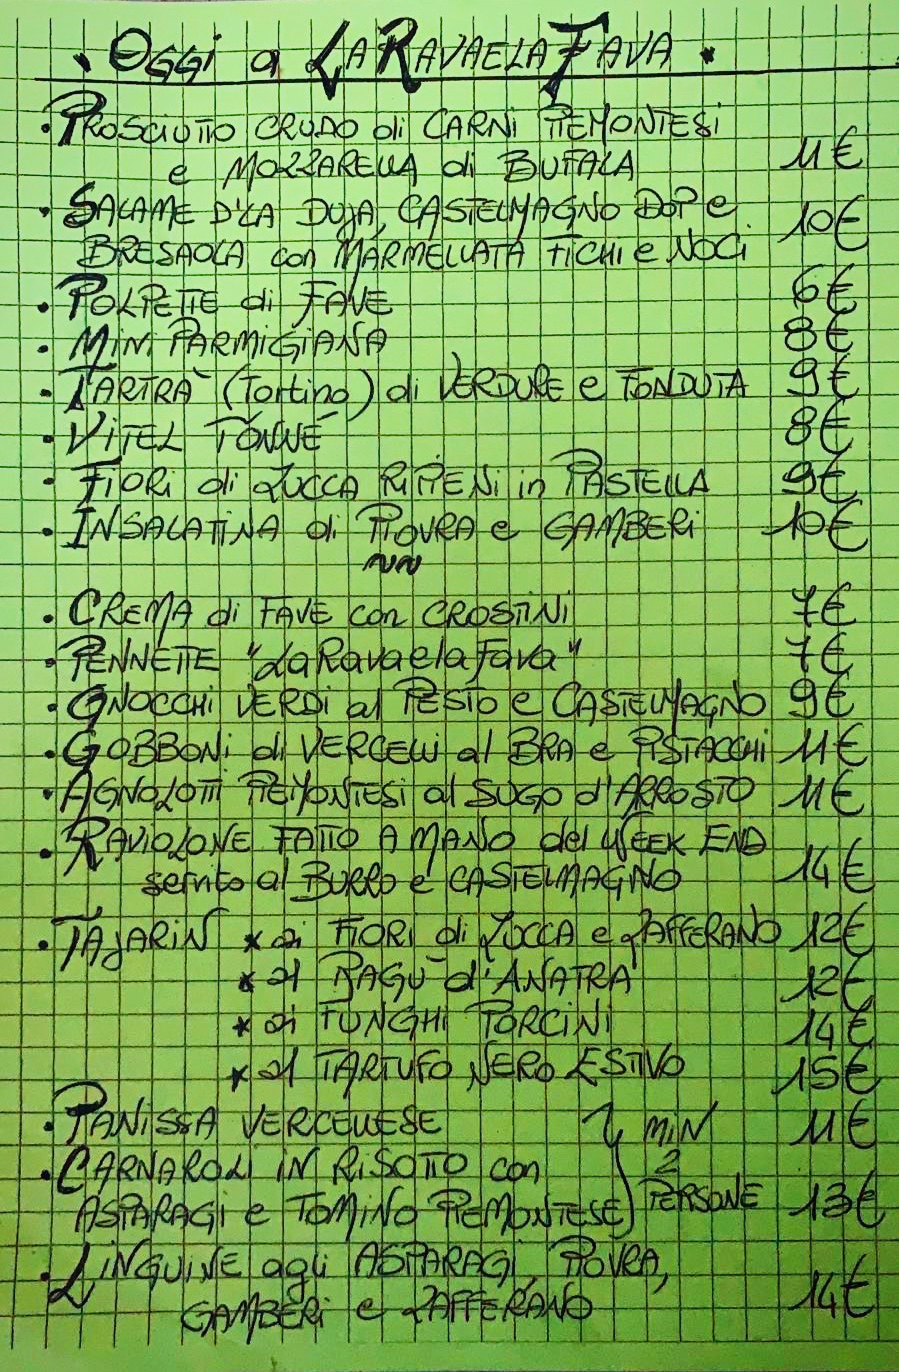 • OGGI a LA RAVAELAFAVA •
• PROSCIUTTO CRUDO di CARNI PIEMONTESI
e MOZZARELLA di BUFALA 11€
• SALAME D'LA DUJA, CASTELMAGNO DOP e
BRESAOLA con MARMELLATA FICHI e NOCI 10€
• POLPETTE di FAVE 6€
• MINI PARMIGIANA 8€
• TARTRA' (Tortino) di VERDURE e FONDUTA 9€
• VITEL TONNÉ 8€
• FIORI di ZUCCA RIPIENI in PASTELLA 9€
• INSALATINA di PIOVRA e GAMBERI 10€
• CREMA di FAVE con CROSTINI 7€
• PENNETTE "LaRavaelaFava" 7€
• GNOCCHI VERDI al PESTO e CASTELMAGNO 9€
• GOBBONI di VERCELLI al BRA e PISTACCHI 11€
• AGNOLOTTI PIEMONTESI al SUGO d'ARROSTO 11€
• RAVIOLONE FATTO A MANO del WEEK END
servito al BURRO e CASTELMAGNO 14€
• TAJARIN * ai FIORI di ZUCCA e ZAFFERANO 12€
* al RAGU' d'ANATRA 12€
* ai FUNGHI PORCINI 14€
* al TARTUFO NERO ESTIVO 15€
• PANISSA VERCELLESE } MIN 11€
• CARNAROLI IN RISOTTO con 2
ASPARAGI e TOMINO PIEMONTESE PERSONE 13€
• LINGUINE agli ASPARAGI, PIOVRA,
GAMBERI e ZAFFERANO 14€